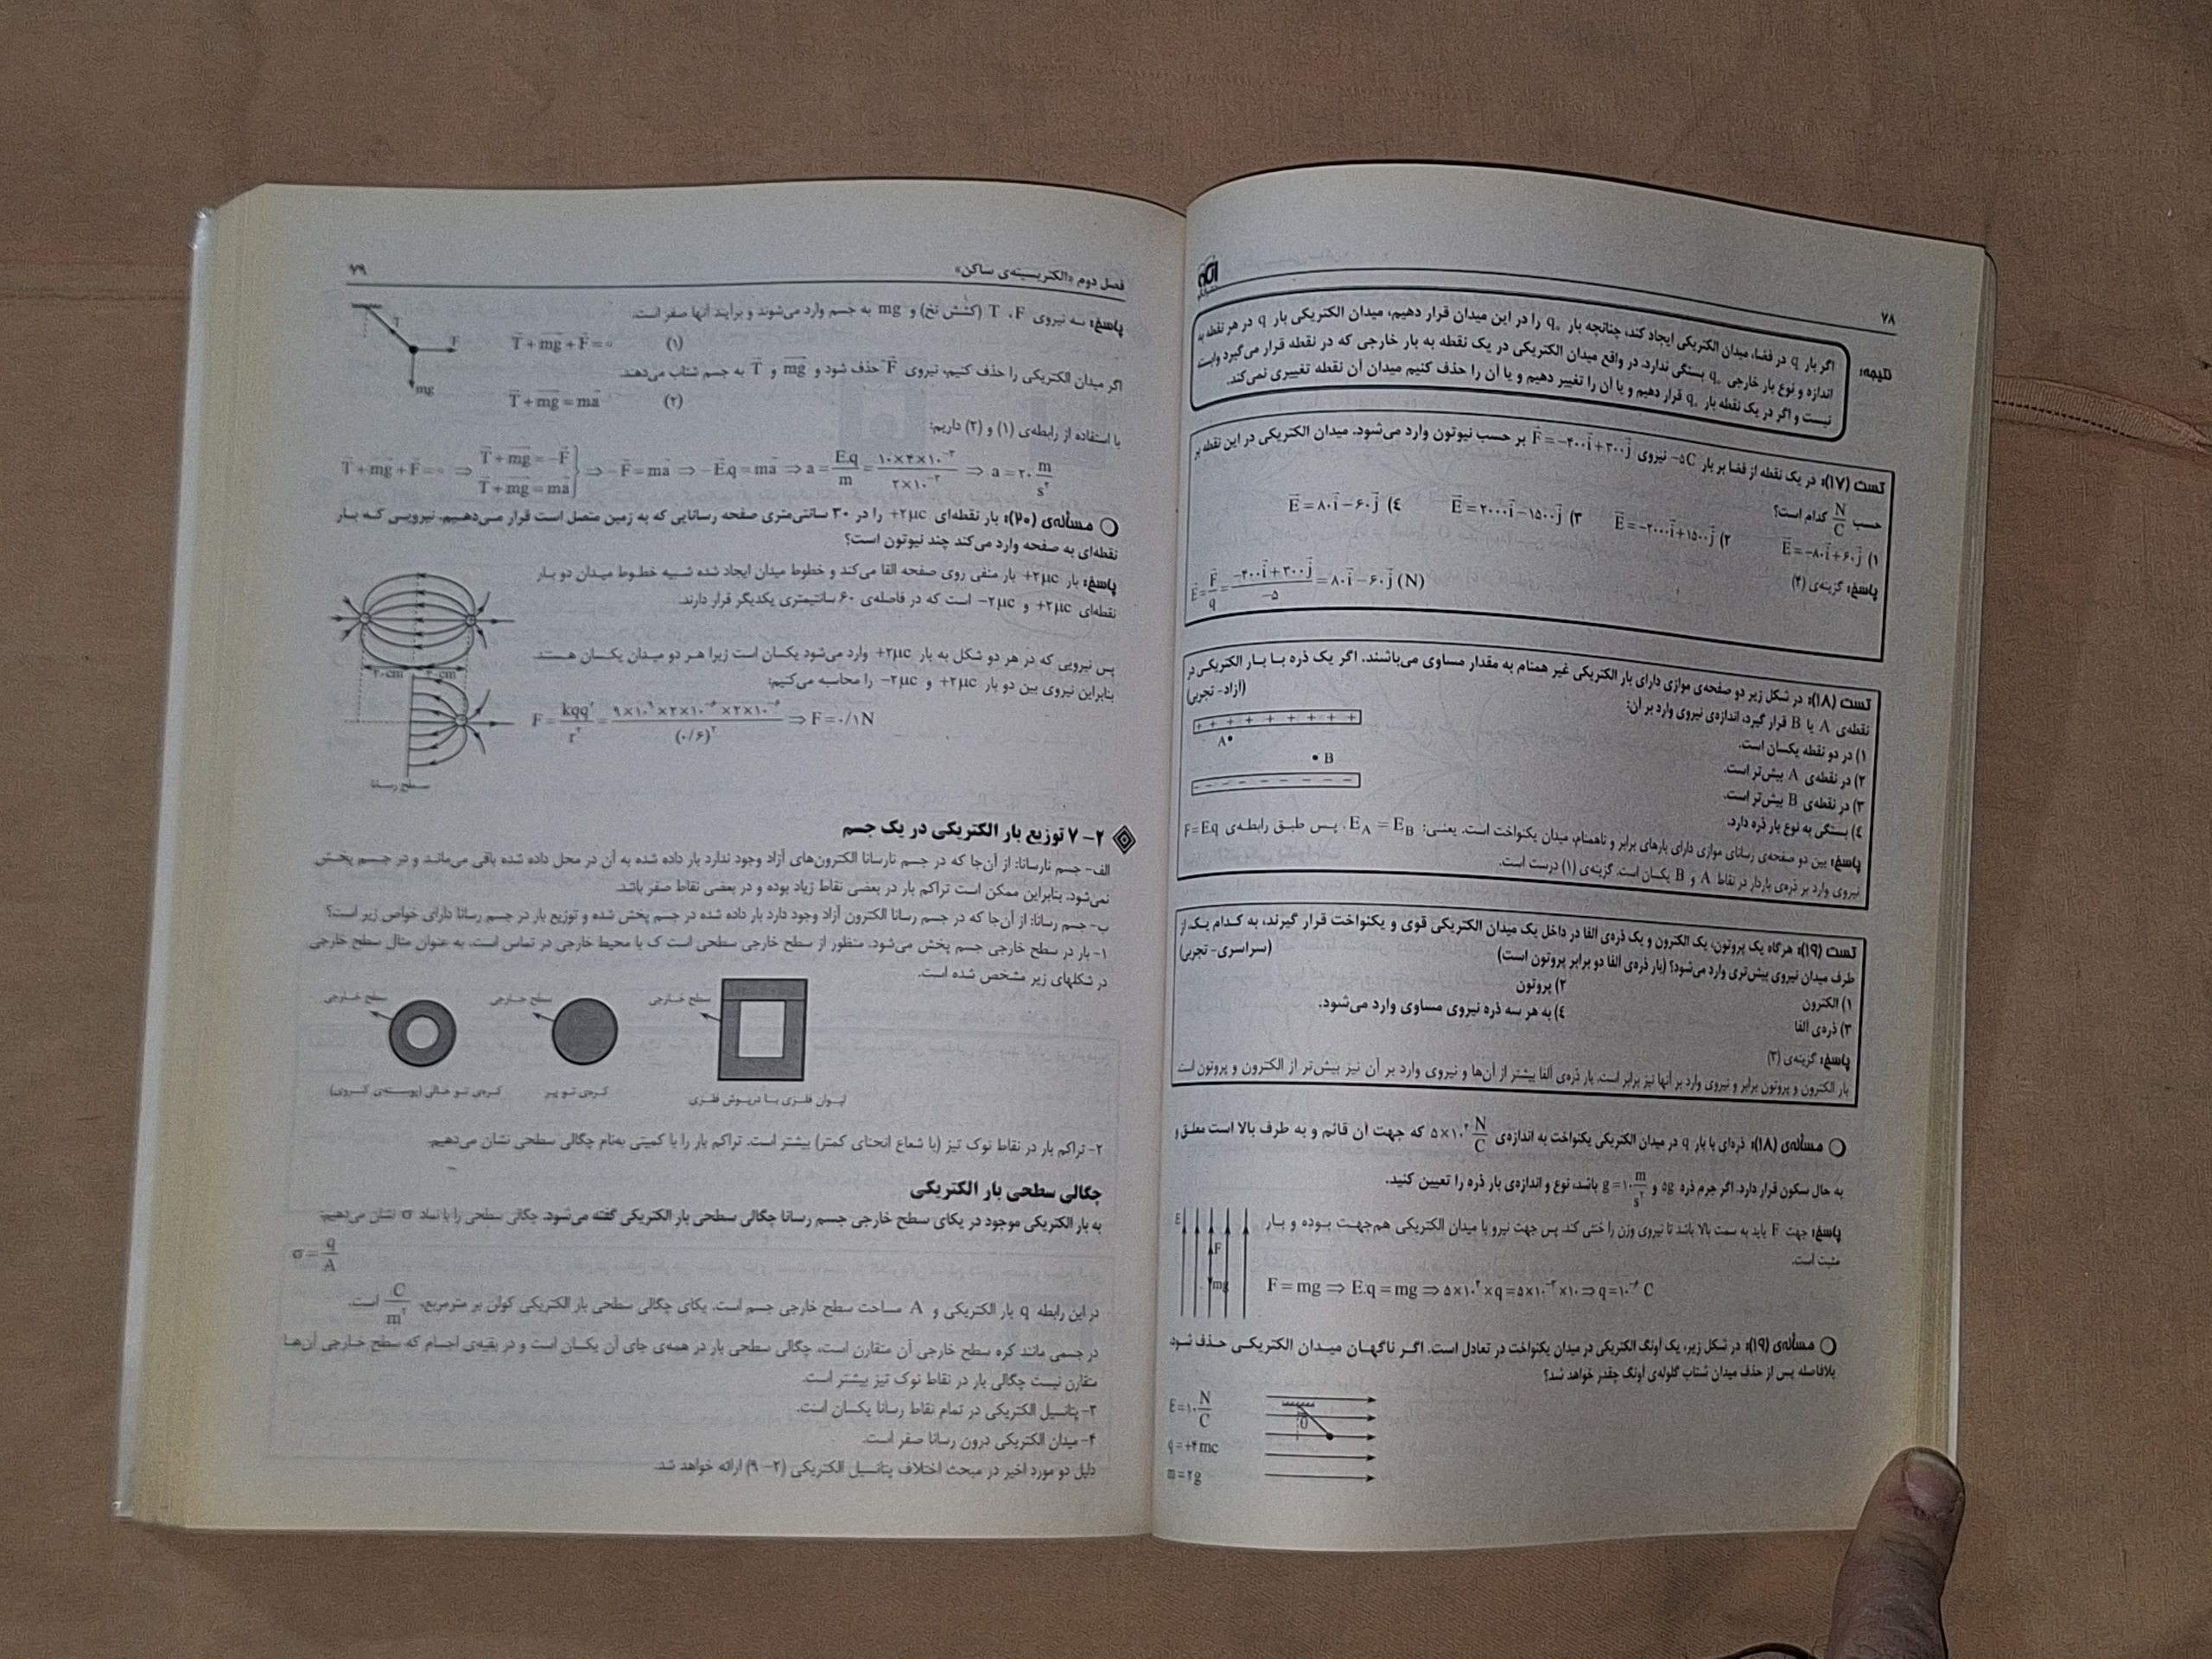 ۷۸
نتیجه:
اگر بار q در فضا، میدان الکتریکی ایجاد کند، چنانچه بار q₀ را در این میدان قرار دهیم، میدان الکتریکی بار q در هر نقطه به
اندازه و نوع بار خارجی q₀ بستگی ندارد. در واقع میدان الکتریکی در یک نقطه به بار خارجی که در نقطه قرار می‌گیرد وابسته
نیست و اگر در یک نقطه بار q₀ قرار دهیم و یا آن را تغییر دهیم و یا آن را حذف کنیم میدان آن نقطه تغییری نمی‌کند.
تست (۱۷): در یک نقطه از فضا بر بار ‎−۵C نیروی F⃗ = −۴۰۰i⃗ + ۳۰۰j⃗ بر حسب نیوتون وارد می‌شود. میدان الکتریکی در این نقطه بر
حسب N/C کدام است؟
۱) E⃗ = −۸۰i⃗ + ۶۰j⃗ ۲) E⃗ = −۲۰۰۰i⃗ + ۱۵۰۰j⃗ ۳) E⃗ = ۲۰۰۰i⃗ − ۱۵۰۰j⃗ ٤) E⃗ = ۸۰i⃗ − ۶۰j⃗
پاسخ: گزینه‌ی (۴)
E⃗ = F⃗/q = (−۴۰۰i⃗ + ۳۰۰j⃗)/−۵ = ۸۰i⃗ − ۶۰j⃗ (N)
تست (۱۸): در شکل زیر دو صفحه‌ی موازی دارای بار الکتریکی غیر همنام به مقدار مساوی می‌باشند. اگر یک ذره با بار الکتریکی در
نقطه‌ی A یا B قرار گیرد، اندازه‌ی نیروی وارد بر آن: (آزاد- تجربی)
۱) در دو نقطه یکسان است.
۲) در نقطه‌ی A بیش‌تر است.
۳) در نقطه‌ی B بیش‌تر است.
٤) بستگی به نوع بار ذره دارد.
+ + + + + + + + +
A
B
پاسخ: بین دو صفحه‌ی رسانای موازی دارای بارهای برابر و ناهمنام، میدان یکنواخت است. یعنی: E_A = E_B. پس طبق رابطه‌ی F=E.q
نیروی وارد بر ذره‌ی باردار در نقاط A و B یکسان است. گزینه‌ی (۱) درست است.
تست (۱۹): هرگاه یک پروتون، یک الکترون و یک ذره‌ی آلفا در داخل یک میدان الکتریکی قوی و یکنواخت قرار گیرند، به کدام یک از
طرف میدان نیروی بیش‌تری وارد می‌شود؟ (بار ذره‌ی آلفا دو برابر پروتون است) (سراسری- تجربی)
۱) الکترون ۲) پروتون
۳) ذره‌ی آلفا ٤) به هر سه ذره نیروی مساوی وارد می‌شود.
پاسخ: گزینه‌ی (۳)
بار الکترون و پروتون برابر و نیروی وارد بر آنها نیز برابر است. بار ذره‌ی آلفا بیشتر از آن‌ها و نیروی وارد بر آن نیز بیش‌تر از الکترون و پروتون است.
مسأله‌ی (۱۸): ذره‌ای با بار q در میدان الکتریکی یکنواخت به اندازه‌ی ۵×۱۰⁴ N/C که جهت آن قائم و به طرف بالا است معلق و
به حال سکون قرار دارد. اگر جرم ذره ۵g و g=۱۰ m/s² باشد، نوع و اندازه‌ی بار ذره را تعیین کنید.
پاسخ: جهت F باید به سمت بالا باشد تا نیروی وزن را خنثی کند. پس جهت نیرو با میدان الکتریکی هم‌جهت بوده و بار
مثبت است.
E
F
mg
F = mg ⇒ E.q = mg ⇒ ۵×۱۰⁴ × q = ۵×۱۰⁻³ × ۱۰ ⇒ q = ۱۰⁻⁶ C
مسأله‌ی (۱۹): در شکل زیر، یک آونگ الکتریکی در میدان یکنواخت در تعادل است. اگر ناگهان میدان الکتریکی حذف شود
بلافاصله پس از حذف میدان شتاب گلوله‌ی آونگ چقدر خواهد شد؟
E = ۱۰ N/C
q = +۴mc
m = ۲g
θ
فصل دوم «الکتریسیته‌ی ساکن» ۷۹
پاسخ: سه نیروی F، T (کشش نخ) و mg به جسم وارد می‌شوند و برآیند آنها صفر است.
T⃗ + mg⃗ + F⃗ = ۰ (۱)
T
F
mg
اگر میدان الکتریکی را حذف کنیم، نیروی F⃗ حذف شود و mg⃗ و T⃗ به جسم شتاب می‌دهند.
T⃗ + mg⃗ = ma⃗ (۲)
با استفاده از رابطه‌ی (۱) و (۲) داریم:
T⃗ + mg⃗ + F⃗ = ۰ ⇒ T⃗ + mg⃗ = −F⃗
T⃗ + mg⃗ = ma⃗ } ⇒ −F⃗ = ma⃗ ⇒ −E⃗.q = ma⃗ ⇒ a = E.q/m = ۱۰×۴×۱۰⁻³/۲×۱۰⁻³ ⇒ a = ۲۰ m/s²
مسأله‌ی (۲۰): بار نقطه‌ای +۲μc را در ۳۰ سانتی‌متری صفحه رسانایی که به زمین متصل است قرار می‌دهیم. نیرویی که بار
نقطه‌ای به صفحه وارد می‌کند چند نیوتون است؟
پاسخ: بار +۲μc بار منفی روی صفحه القا می‌کند و خطوط میدان ایجاد شده شبیه خطوط میدان دو بار
نقطه‌ای +۲μc و −۲μc است که در فاصله‌ی ۶۰ سانتیمتری یکدیگر قرار دارند.
پس نیرویی که در هر دو شکل به بار +۲μc وارد می‌شود یکسان است زیرا هر دو میدان یکسان هستند
بنابراین نیروی بین دو بار +۲μc و −۲μc را محاسبه می‌کنیم:
F = kqq′/r² = ۹×۱۰⁹×۲×۱۰⁻⁶×۲×۱۰⁻⁶/(۰/۶)² ⇒ F = ۰/۱N
سطح رسانا
۲-۷ توزیع بار الکتریکی در یک جسم
الف- جسم نارسانا: از آن‌جا که در جسم نارسانا الکترون‌های آزاد وجود ندارد بار داده شده به آن در محل داده شده باقی می‌ماند و در جسم پخش
نمی‌شود. بنابراین ممکن است تراکم بار در بعضی نقاط زیاد بوده و در بعضی نقاط صفر باشد.
ب- جسم رسانا: از آن‌جا که در جسم رسانا الکترون آزاد وجود دارد بار داده شده در جسم پخش شده و توزیع بار در جسم رسانا دارای خواص زیر است؟
۱- بار در سطح خارجی جسم پخش می‌شود. منظور از سطح خارجی سطحی است ک با محیط خارجی در تماس است. به عنوان مثال سطح خارجی
در شکلهای زیر مشخص شده است.
سطح خارجی سطح خارجی سطح خارجی
لیوان فلزی با درپوش فلزی کره‌ی تو پر کره‌ی تو خالی (پوسته‌ی کروی)
۲- تراکم بار در نقاط نوک تیز (با شعاع انحنای کمتر) بیشتر است. تراکم بار را با کمیتی به‌نام چگالی سطحی نشان می‌دهیم.
چگالی سطحی بار الکتریکی
به بار الکتریکی موجود در یکای سطح خارجی جسم رسانا چگالی سطحی بار الکتریکی گفته می‌شود. چگالی سطحی را با نماد σ نشان می‌دهیم.
σ = q/A
در این رابطه q بار الکتریکی و A مساحت سطح خارجی جسم است. یکای چگالی سطحی بار الکتریکی کولن بر مترمربع، C/m² است.
در جسمی مانند کره سطح خارجی آن متقارن است، چگالی سطحی بار در همه‌ی جای آن یکسان است و در بقیه‌ی اجسام که سطح خارجی آن‌ها
متقارن نیست چگالی بار در نقاط نوک تیز بیشتر است.
۳- پتانسیل الکتریکی در تمام نقاط رسانا یکسان است.
۴- میدان الکتریکی درون رسانا صفر است.
دلیل دو مورد اخیر در مبحث اختلاف پتانسیل الکتریکی (۲-۹) ارائه خواهد شد.